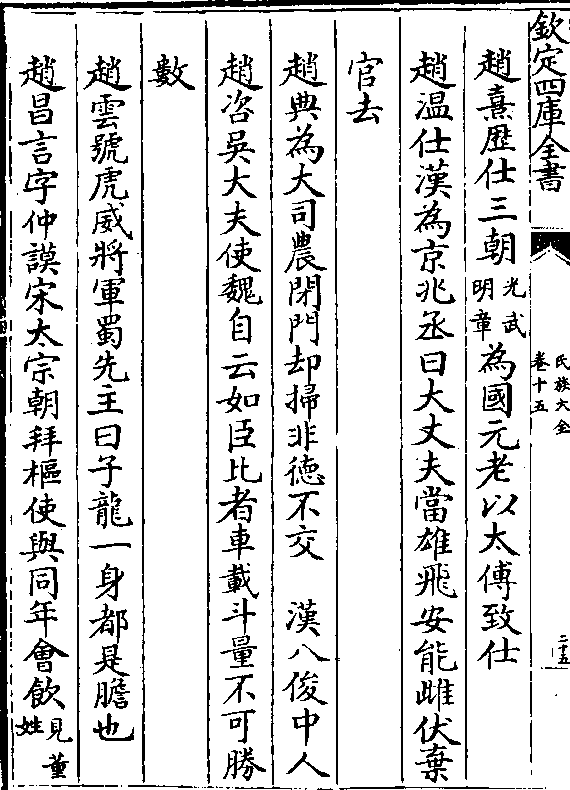 欽定四庫全書
氏族大全
卷十五
二十五
趙熹歷仕三朝光武明章為國元老以太傅致仕
趙温仕漢為京兆丞曰大丈夫當雄飛安能雌伏棄
官去
趙典為大司農閉門却掃非德不交　漢八俊中人
趙咨吳大夫使魏自云如臣比者車載斗量不可勝
數
趙雲號虎威將軍蜀先主曰子龍一身都是膽也
趙昌言字仲謨宋太宗朝拜樞使與同年會飲見董姓